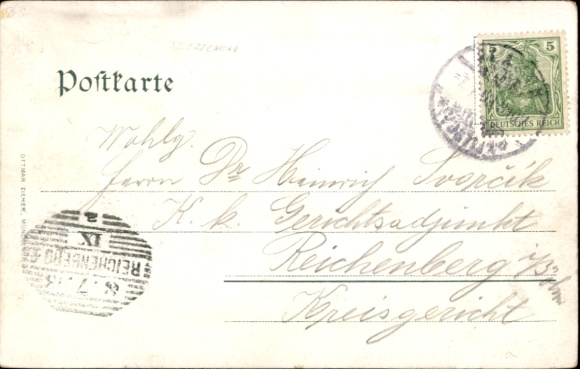 Postkarte
5
DEUTSCHES REICH
Wohlg.
Herrn Dr Heinrich Svorčík
K. k. Gerichtsadjunkt
Reichenberg i/Böhm
Kreisgericht
REICHENBERG
IX
2
OTTMAR ZIEHER, MÜNCHEN